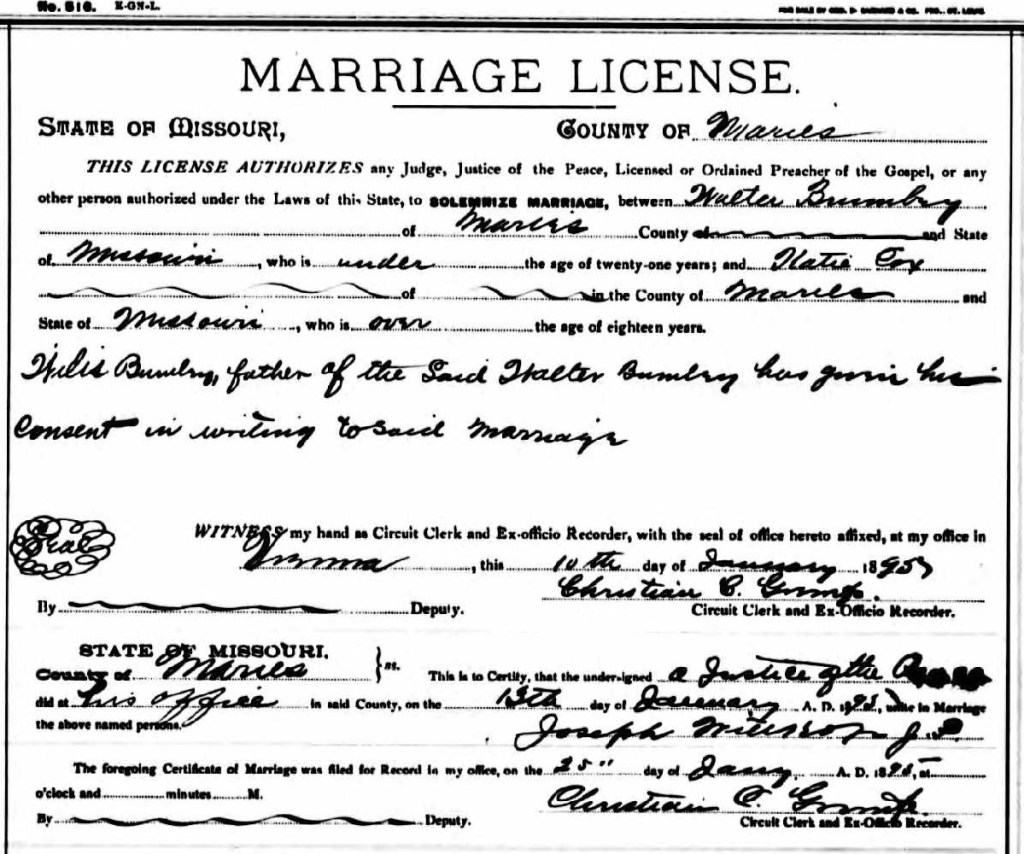 No. 516. K-GN-L.
MARRIAGE LICENSE.
STATE OF MISSOURI, COUNTY OF Maries
THIS LICENSE AUTHORIZES any Judge, Justice of the Peace, Licensed or Ordained Preacher of the Gospel, or any
other person authorized under the Laws of this State, to SOLEMNIZE MARRIAGE, between Walter Bumbry
of Maries County of and State
of Missouri, who is under the age of twenty-one years; and Katie Cox
of in the County of Maries and
State of Missouri, who is over the age of eighteen years.
Wilis Bumbry, father of the Said Walter Bumbry has given his
Consent in writing to Said Marriage
Seal
WITNESS my hand as Circuit Clerk and Ex-officio Recorder, with the seal of office hereto affixed, at my office in
Vienna, this 10th day of January 1895
Christian C.
By Deputy. Circuit Clerk and Ex-Officio Recorder.
STATE OF MISSOURI,
County of Maries ss. This is to Certify, that the undersigned a Justice of the
did at his office in said County, on the 13th day of January A. D. 1895, unite in Marriage
the above named persons.
Joseph J. P.
The foregoing Certificate of Marriage was filed for Record in my office, on the 25" day of Jany A. D. 1895, at
o'clock and minutes M.
Christian C.
By Deputy. Circuit Clerk and Ex-Officio Recorder.